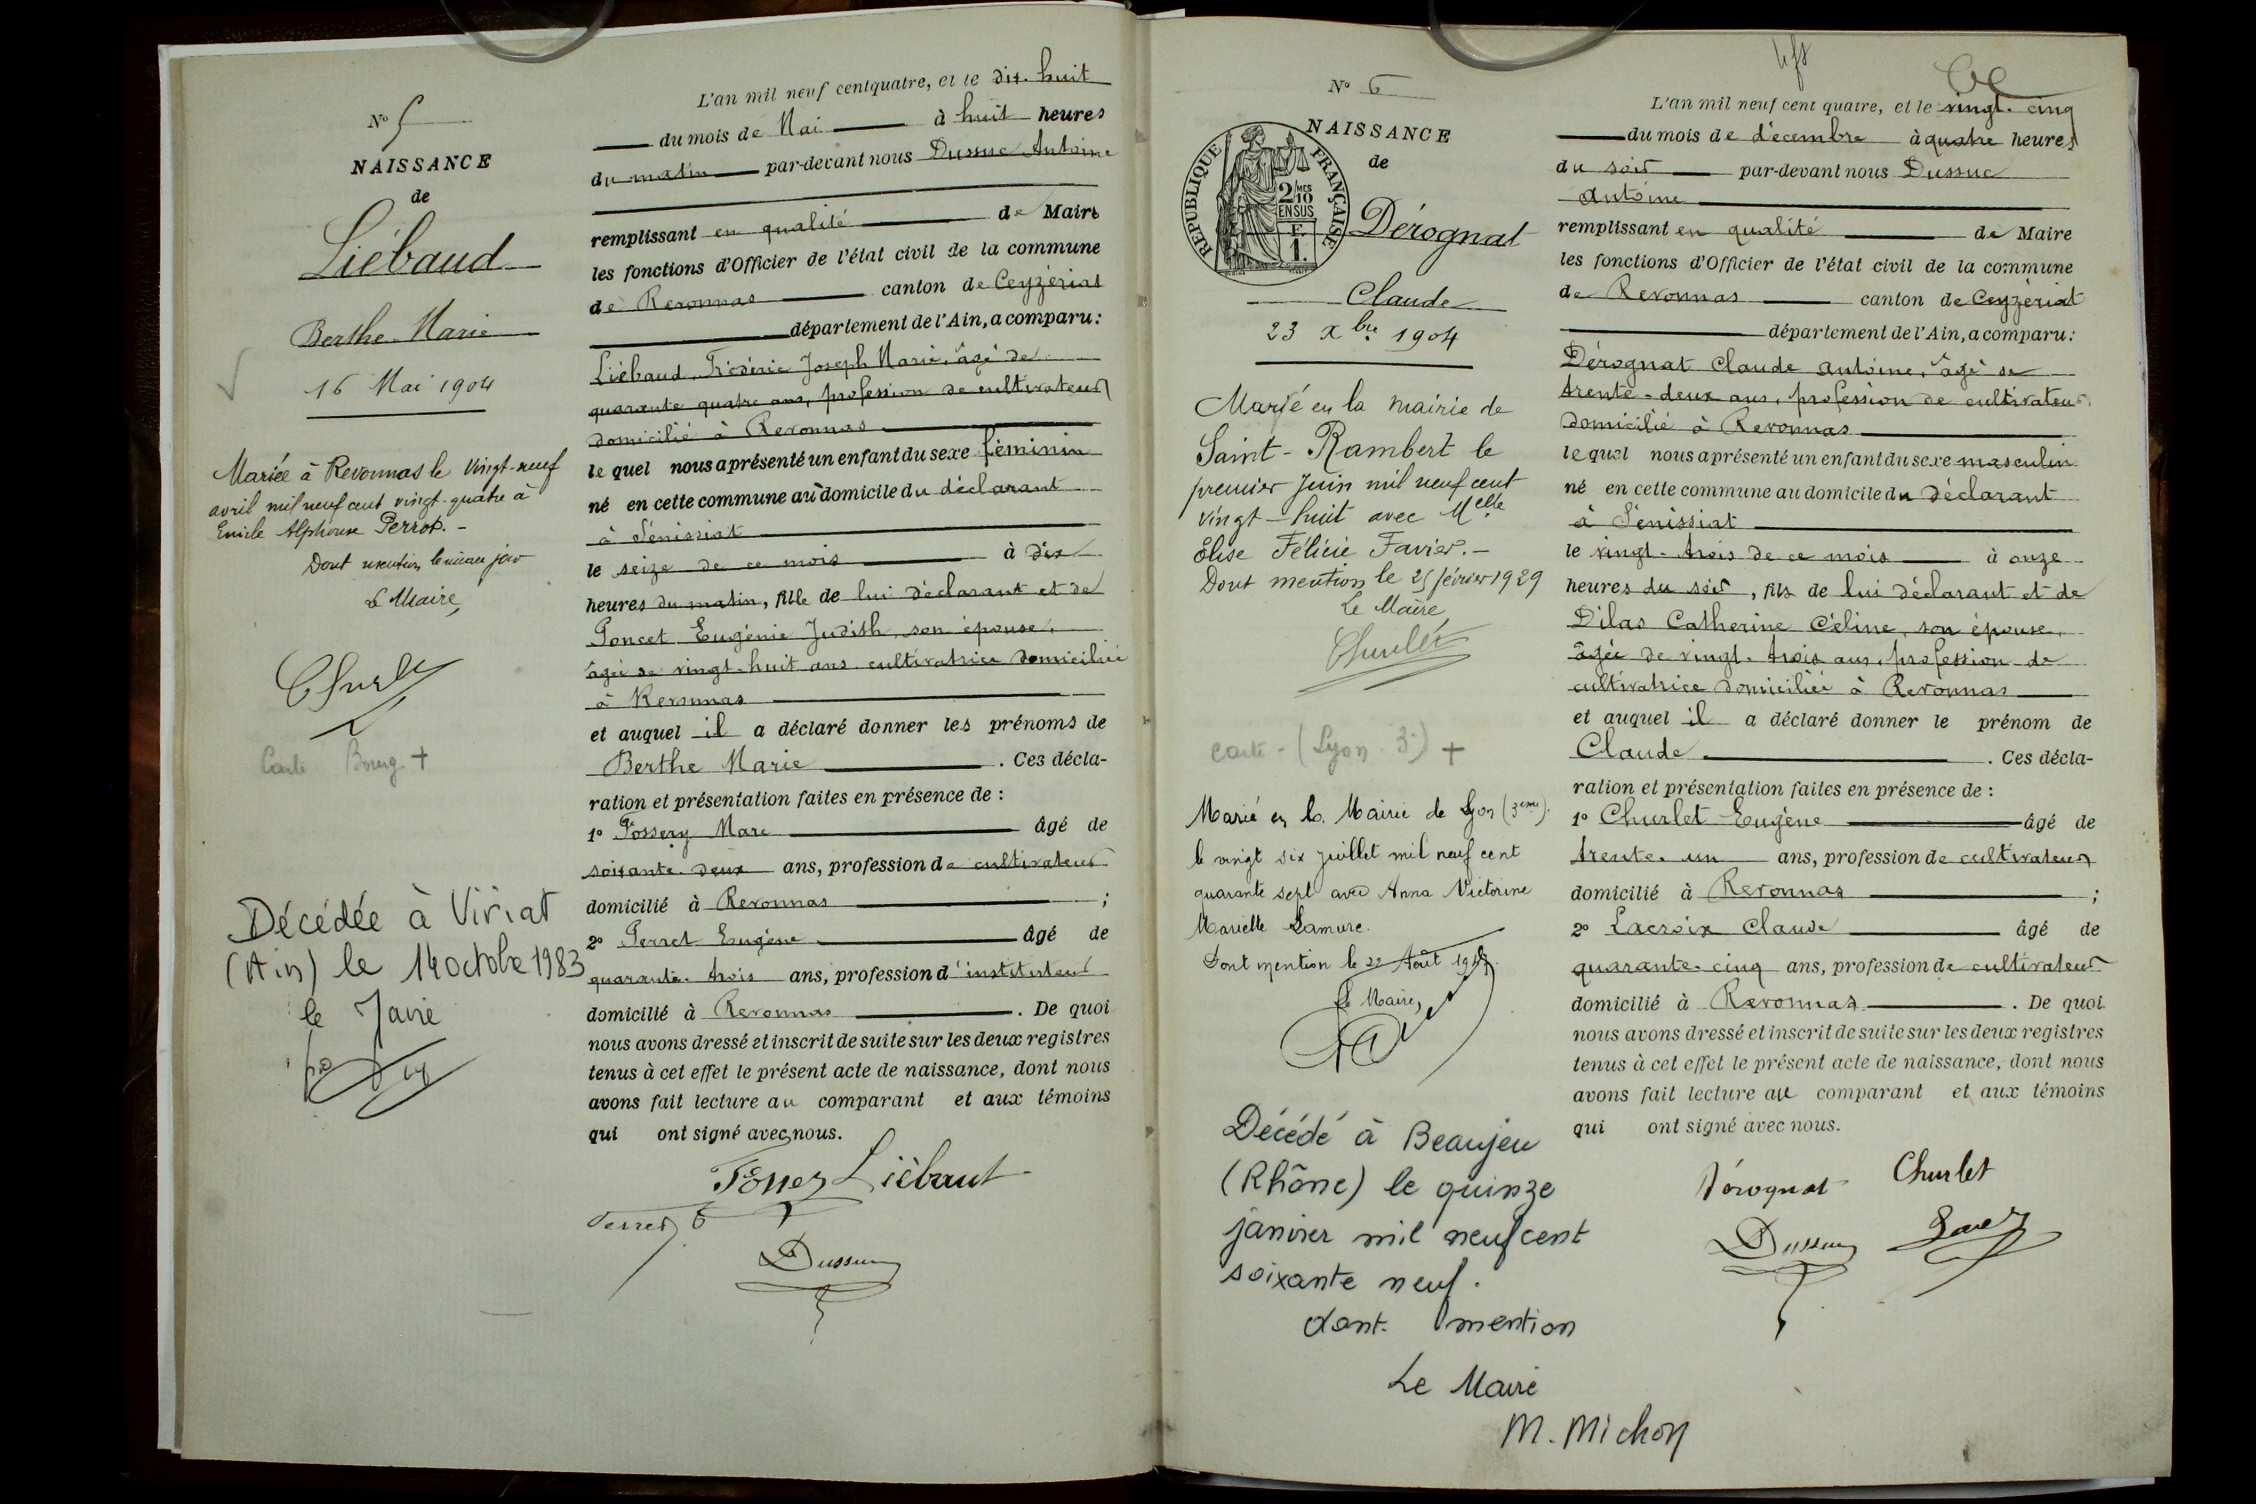 N° 5
NAISSANCE
de
Liébaud
Berthe Marie
16 Mai 1904
Mariée à Revonnas le vingt-neuf
avril mil neuf cent vingt-quatre à
Emile Alphonse Perrot. -
Dont mention le même jour
Le Maire,
Carte Bourg +
Décédée à Viriat
(Ain) le 14 octobre 1983
le Maire
L'an mil neuf cent quatre, et le dix-huit
du mois de Mai à huit heures
du matin par-devant nous Dussuc Antoine
remplissant en qualité de Maire
les fonctions d'Officier de l'état civil de la commune
de Revonnas canton de Ceyzériat
département de l'Ain, a comparu :
Liébaud, Frédéric Joseph Marie, âgé de
quarante quatre ans, profession de cultivateur
domicilié à Revonnas
lequel nous a présenté un enfant du sexe féminin
né en cette commune au domicile du déclarant
à Sénissiat
le seize de ce mois à dix
heures du matin, fille de lui déclarant et de
Poncet Eugénie Judith, son épouse,
âgée de vingt-huit ans cultivatrice domiciliée
à Revonnas
et auquel il a déclaré donner les prénoms de
Berthe Marie . Ces décla-
ration et présentation faites en présence de :
1° Marc âgé de
soixante-deux ans, profession de cultivateur
domicilié à Revonnas ;
2° Perret Eugène âgé de
quarante-trois ans, profession d'instituteur
domicilié à Revonnas . De quoi
nous avons dressé et inscrit de suite sur les deux registres
tenus à cet effet le présent acte de naissance, dont nous
avons fait lecture au comparant et aux témoins
qui ont signé avec nous.
Liébaut
Perret E
Dussuc
N° 6
NAISSANCE
de
RÉPUBLIQUE FRANÇAISE
2/10 MES
EN SUS
F.
1.
Dérognat
Claude
23 Xbre 1904
Marié en la mairie de
Saint-Rambert le
premier Juin mil neuf cent
vingt-huit avec Melle
Elise Félicie Favier. -
Dont mention le 25 février 1929
Le Maire
Churlet
Carte - (Lyon 3e) +
Marié en la Mairie de Lyon (3eme)
le vingt six juillet mil neuf cent
quarante sept avec Anna Victorine
Mariette Lamure.
Dont mention le 22 Août 1947.
Le Maire,
Décédé à Beaujeu
(Rhône) le quinze
janvier mil neuf cent
soixante neuf.
dont mention
Le Maire
M. Michon
L'an mil neuf cent quatre, et le vingt-cinq
du mois de décembre à quatre heures
du soir par-devant nous Dussuc
Antoine
remplissant en qualité de Maire
les fonctions d'Officier de l'état civil de la commune
de Revonnas canton de Ceyzériat
département de l'Ain, a comparu :
Dérognat Claude Antoine, âgé de
trente-deux ans, profession de cultivateur
domicilié à Revonnas
lequel nous a présenté un enfant du sexe masculin
né en cette commune au domicile du déclarant
à Sénissiat
le vingt-trois de ce mois à onze
heures du soir, fils de lui déclarant et de
Dilas Catherine Céline, son épouse,
âgée de vingt-trois ans, profession de
cultivatrice domiciliée à Revonnas
et auquel il a déclaré donner le prénom de
Claude . Ces décla-
ration et présentation faites en présence de :
1° Churlet Eugène âgé de
trente-un ans, profession de cultivateur
domicilié à Revonnas ;
2° Lacroix Claude âgé de
quarante-cinq ans, profession de cultivateur
domicilié à Revonnas . De quoi
nous avons dressé et inscrit de suite sur les deux registres
tenus à cet effet le présent acte de naissance, dont nous
avons fait lecture au comparant et aux témoins
qui ont signé avec nous.
Dérognat Churlet
Dussuc